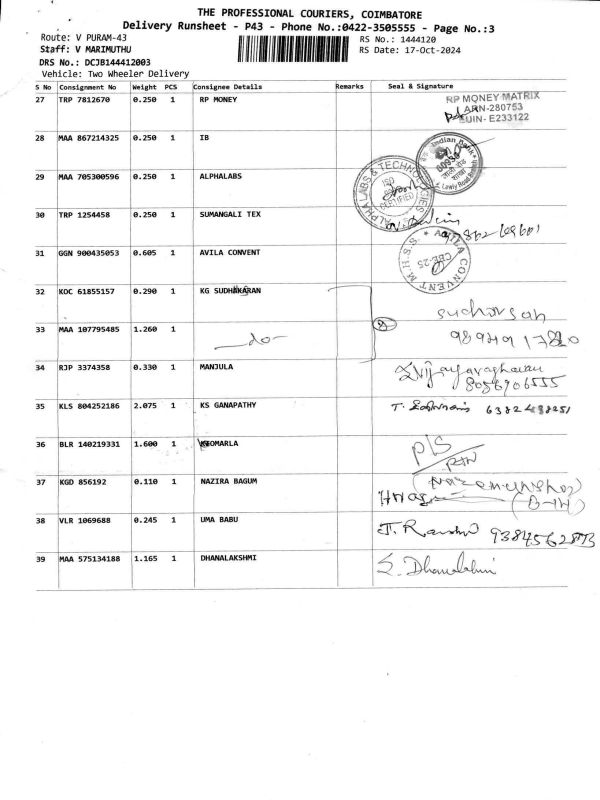 THE PROFESSIONAL COURIERS, COIMBATORE
Delivery Runsheet - P43 - Phone No.:0422-3505555 - Page No.:3
Route: V PURAM-43 RS No.: 1444120
Staff: V MARIMUTHU RS Date: 17-Oct-2024
DRS No.: DCJB144412003
Vehicle: Two Wheeler Delivery
S No Consignment No Weight PCS Consignee Details Remarks Seal & Signature
27 TRP 7812670 0.250 1 RP MONEY RP MONEY MATRIX
ARN-280753
EUIN- E233122
28 MAA 867214325 0.250 1 IB Indian Bank
29 MAA 705300596 0.250 1 ALPHALABS ALPHA LABS & TECHNOLOGIES
ISO
CERTIFIED
30 TRP 1254458 0.250 1 SUMANGALI TEX
31 GGN 900435053 0.605 1 AVILA CONVENT AVILA CONVENT M.H.S.S.
CBE-25
32 KOC 61855157 0.290 1 KG SUDHAKARAN
33 MAA 107795485 1.260 1 -do-
34 RJP 3374358 0.330 1 MANJULA Vijayaraghavan
8056906555
35 KLS 804252186 2.075 1 KS GANAPATHY T. 6382498251
36 BLR 140219331 1.600 1 KOMARLA P/S
37 KGD 856192 0.110 1 NAZIRA BAGUM
38 VLR 1069688 0.245 1 UMA BABU J.
39 MAA 575134188 1.165 1 DHANALAKSHMI S. Dhanalakshmi